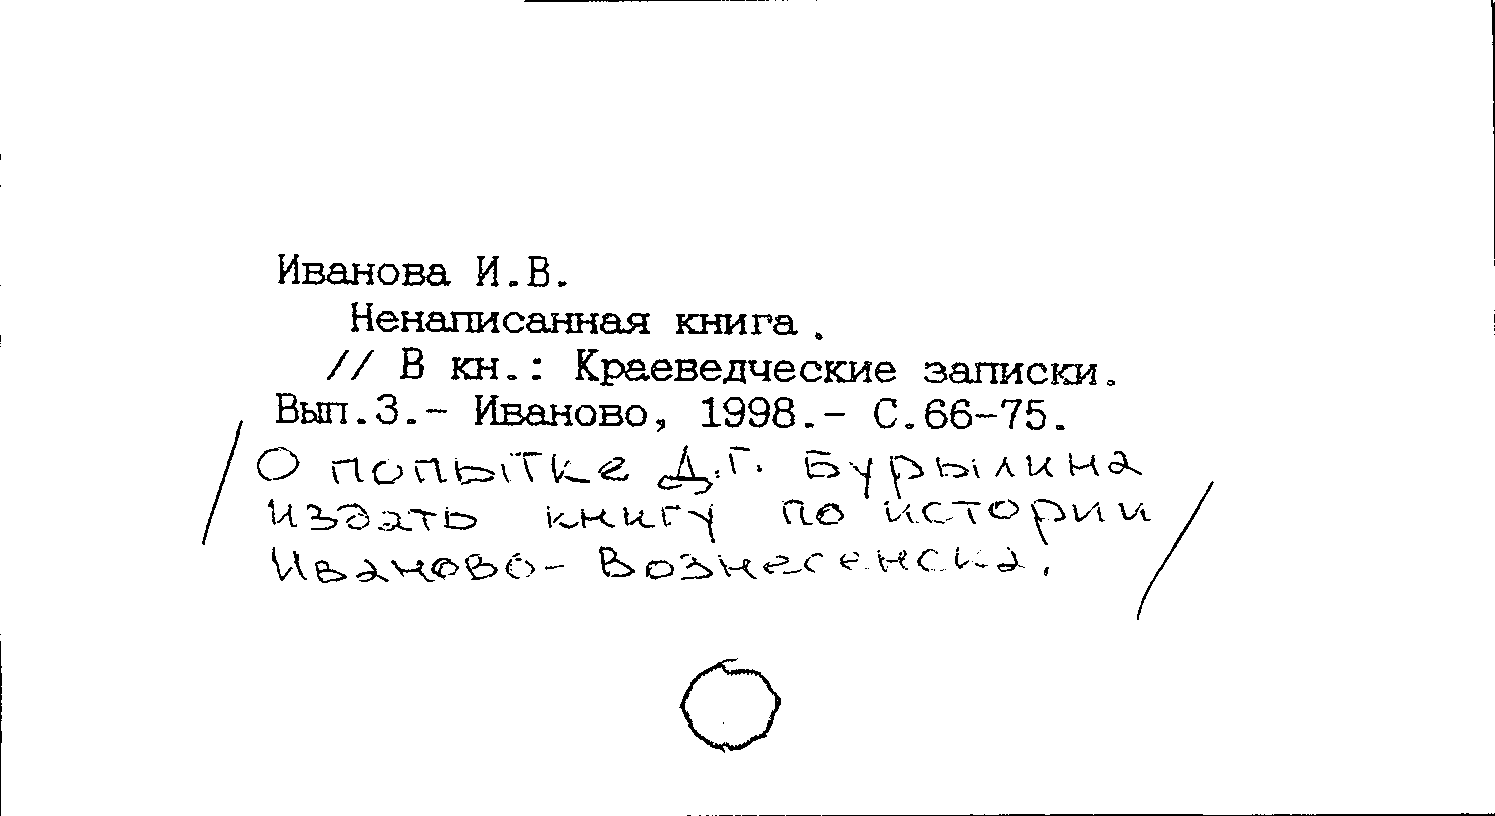 Иванова И.В.
Ненаписанная книга.
// В кн.: Краеведческие записки.
Вып.3.- Иваново, 1998.- С.66-75.
/О попытке Д.Г. Бурылина
издать книгу по истории
Иваново-Вознесенска./